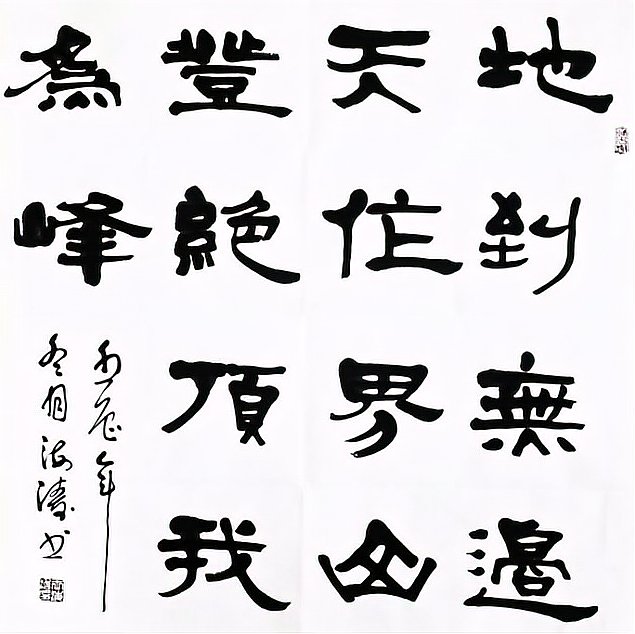 地到無邊
天作界山
登絕頂我
為峰
壬辰年
冬月海濤书